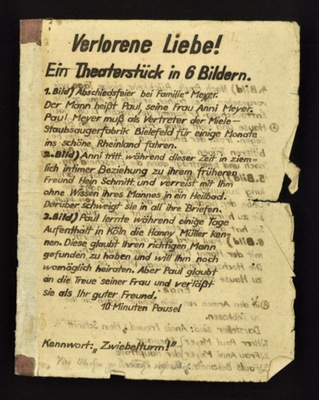 Verlorene Liebe!
Ein Theaterstück in 6 Bildern.
1. Bild) Abschiedsfeier bei Familie Meyer.
Der Mann heißt Paul, seine Frau Anni Meyer.
Paul Meyer muß als Vertreter der Miele-
Staubsaugerfabrik Bielefeld für einige Monate
ins schöne Rheinland fahren.
2. Bild) Anni tritt während dieser Zeit in ziem-
lich intimer Beziehung zu ihrem früheren
Freund Hein Schmitt und verreist mit ihm
ohne Wissen ihres Mannes in ein Heilbad.
Darüber schweigt sie in all ihre Briefen.
3. Bild) Paul lernte während einige Tage
Aufenthalt in Köln die Hanny Müller ken-
nen. Diese glaubt ihren richtigen Mann
gefunden zu haben und will ihm noch
womöglich heiraten. Aber Paul glaubt
an die Treue seiner Frau und verläßt
sie als ihr guter Freund.
10 Minuten Pause!
Kennwort: „Zwiebelturm!"